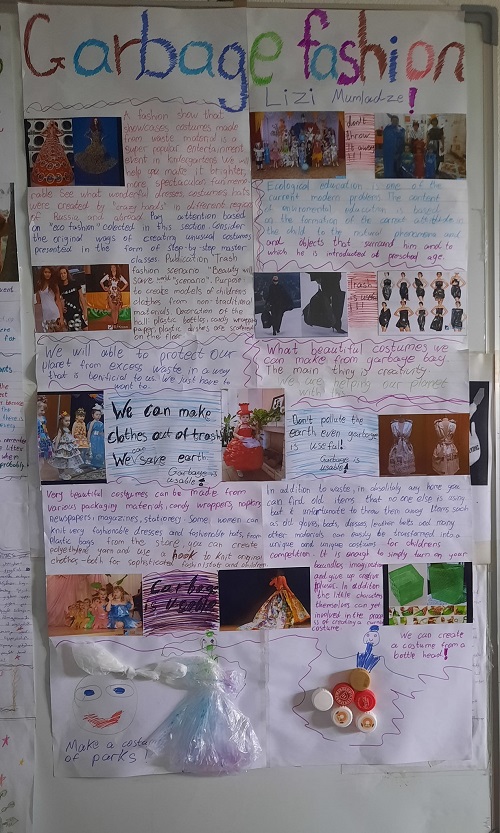 Garbage fashion
Lizi Mumladze!
A fashion show that
showcases costumes made
from waste material is a
super popular entertainment
event in kindergartens. We will
help you make it brighter,
more spectacular, funnier
cable See what wonderful dresses, costumes, hats
were created by "crazy hands" in different regions
of Russia and abroad. Pay attention based
on "eco fashion" colected in this section. Consider
the original ways of creating unusual costumes
presented in the form of step-by-step master
classes Publication "Trash
fashion scenario "Beauty will
save world "scenario". Purpose
to create models of childrens
clothes from non-traditional
materials. Decoration of the
hall plastic bottles, candy wrappers
paper, plastic dishes are scattered
on the floor
don't
throw
it away!!!
Ecological education is one of the
current modern problems. The content
of environmental education is based
on the formation of the correct attitude in
the child to the natural phenomena and
and objects that surround him and to
which he is introduced at preschool age.
Trash
is useful
!!!
We will able to protect our
planet from excess waste in a way
that is benificial to us. We just have to
want to.
What beautiful costumes we
can make from garbage bag.
The main thing is creativity
We are helping our planet
with this
We can make
clothes out of trash
We can save earth.
Garbage is
usable
Don't pollute the
earth, even garbage
is useful!
Garbage is
usable
Very beautiful costumes can be made from
various packaging materials, candy wrappers, napkins,
newspapers, magazines, stationery. Some women can
knit very fashionable dresses and fashionable hats, from
plastic bags from the store you can create
polyethylene yarn and use a hook to knit original
clothes-both for sophisticated fashionistats and children
In addition to waste, in absolutly any home you
can find old items that no one else is using
but it unfortunate to throw them away. Items such
as old gloves, bads, dresses, leather belts and many
other materials can easily be transformed into a
unique and unique costume for children's
competition. It is enough to simply turn on your
boundless imagination
and give up creative
pluses. In addition
the little characters
themselves can get
involved in the process
of creating a
costume
Garbage
is Usable
Make a costa
of parks!
We can create
a costume from a
bottle head!